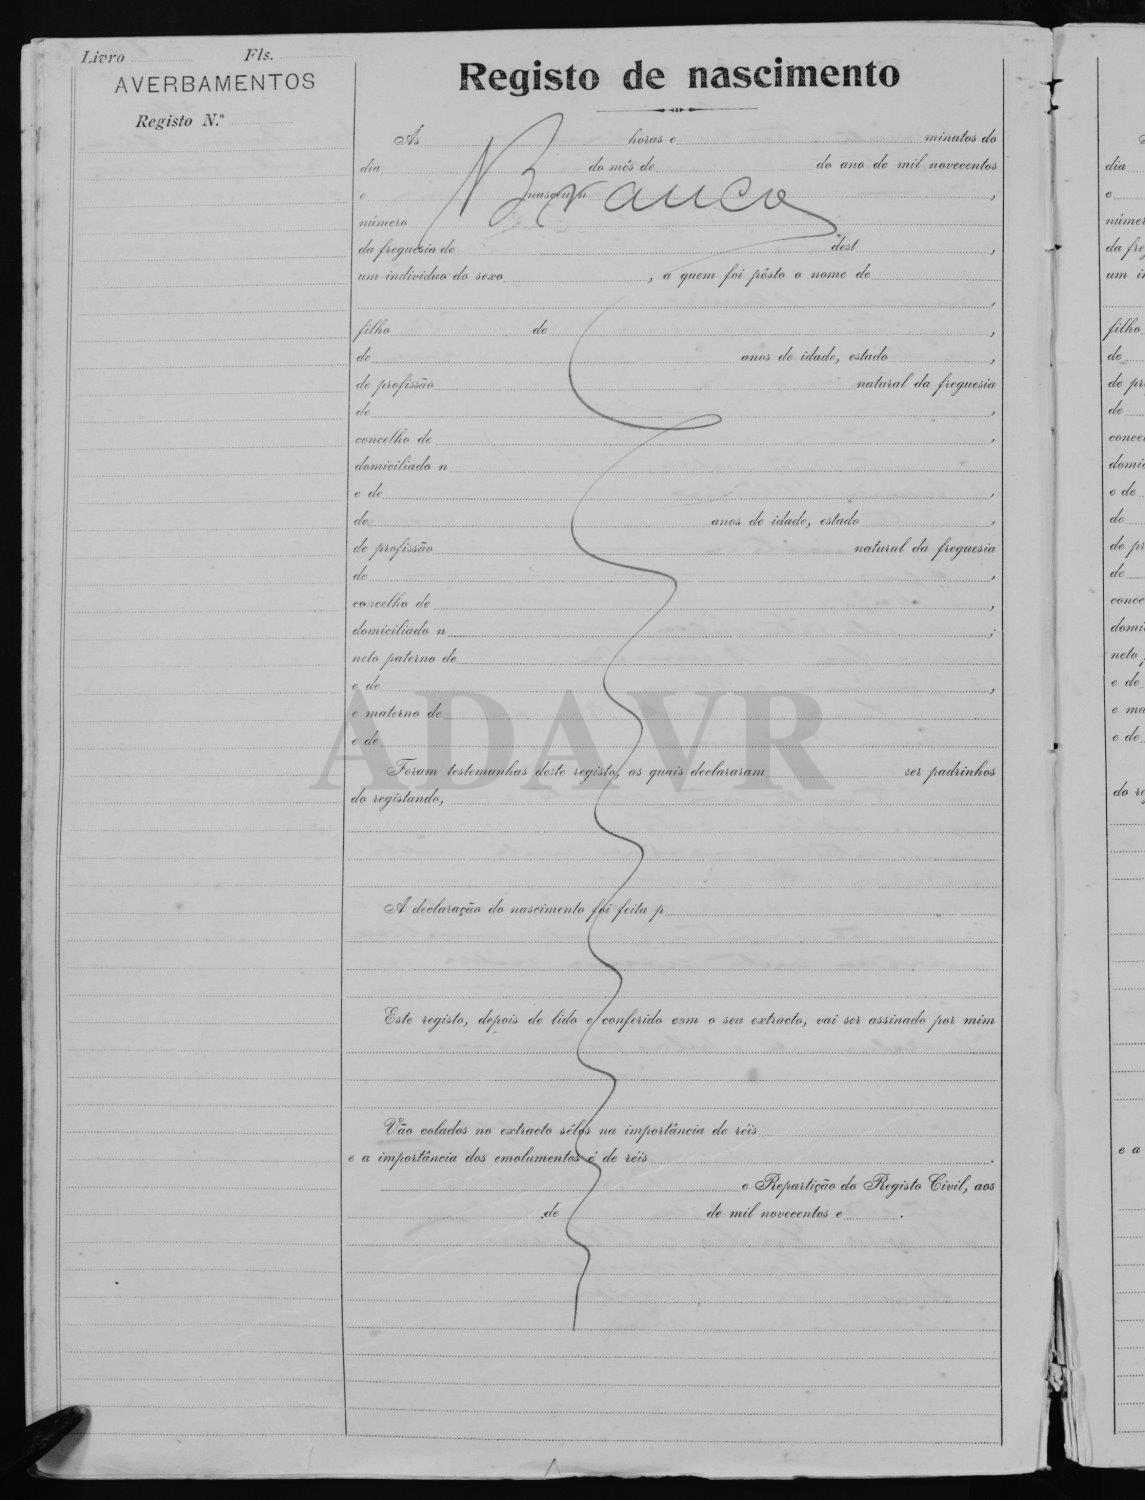 Livro Fls.
AVERBAMENTOS
Registo N.º
Registo de nascimento
Ás horas e minutos do
dia do mês de do ano de mil novecentos
e nasceu n ,
Branco
número
da freguesia de dest ,
um individuo do sexo , a quem foi pôsto o nome de
,
filho de ,
de anos de idade, estado ,
de profissão natural da freguesia
de ,
concelho de ,
domiciliado n
e de ,
de anos de idade, estado ,
de profissão natural da freguesia
de ,
concelho de ,
domiciliado n ;
neto paterno de
e de ,
e materno de
e de
ADAVR
Foram testemunhas deste registo, as quais declararam ser padrinhos
do registando,
A declaração do nascimento foi feita p
Este registo, depois de lido e conferido com o seu extracto, vai ser assinado por mim
Vão colados no extracto sêlos na importância de réis
e a importância dos emolumentos é de réis .
e Repartição do Registo Civil, aos
de de mil novecentos e .
dia
e
númer
da fre
um in
filho
de
de pr
de
conce
domi
e de
de
de pr
de
conce
domi
neto
e de
e ma
e de
do re
e a